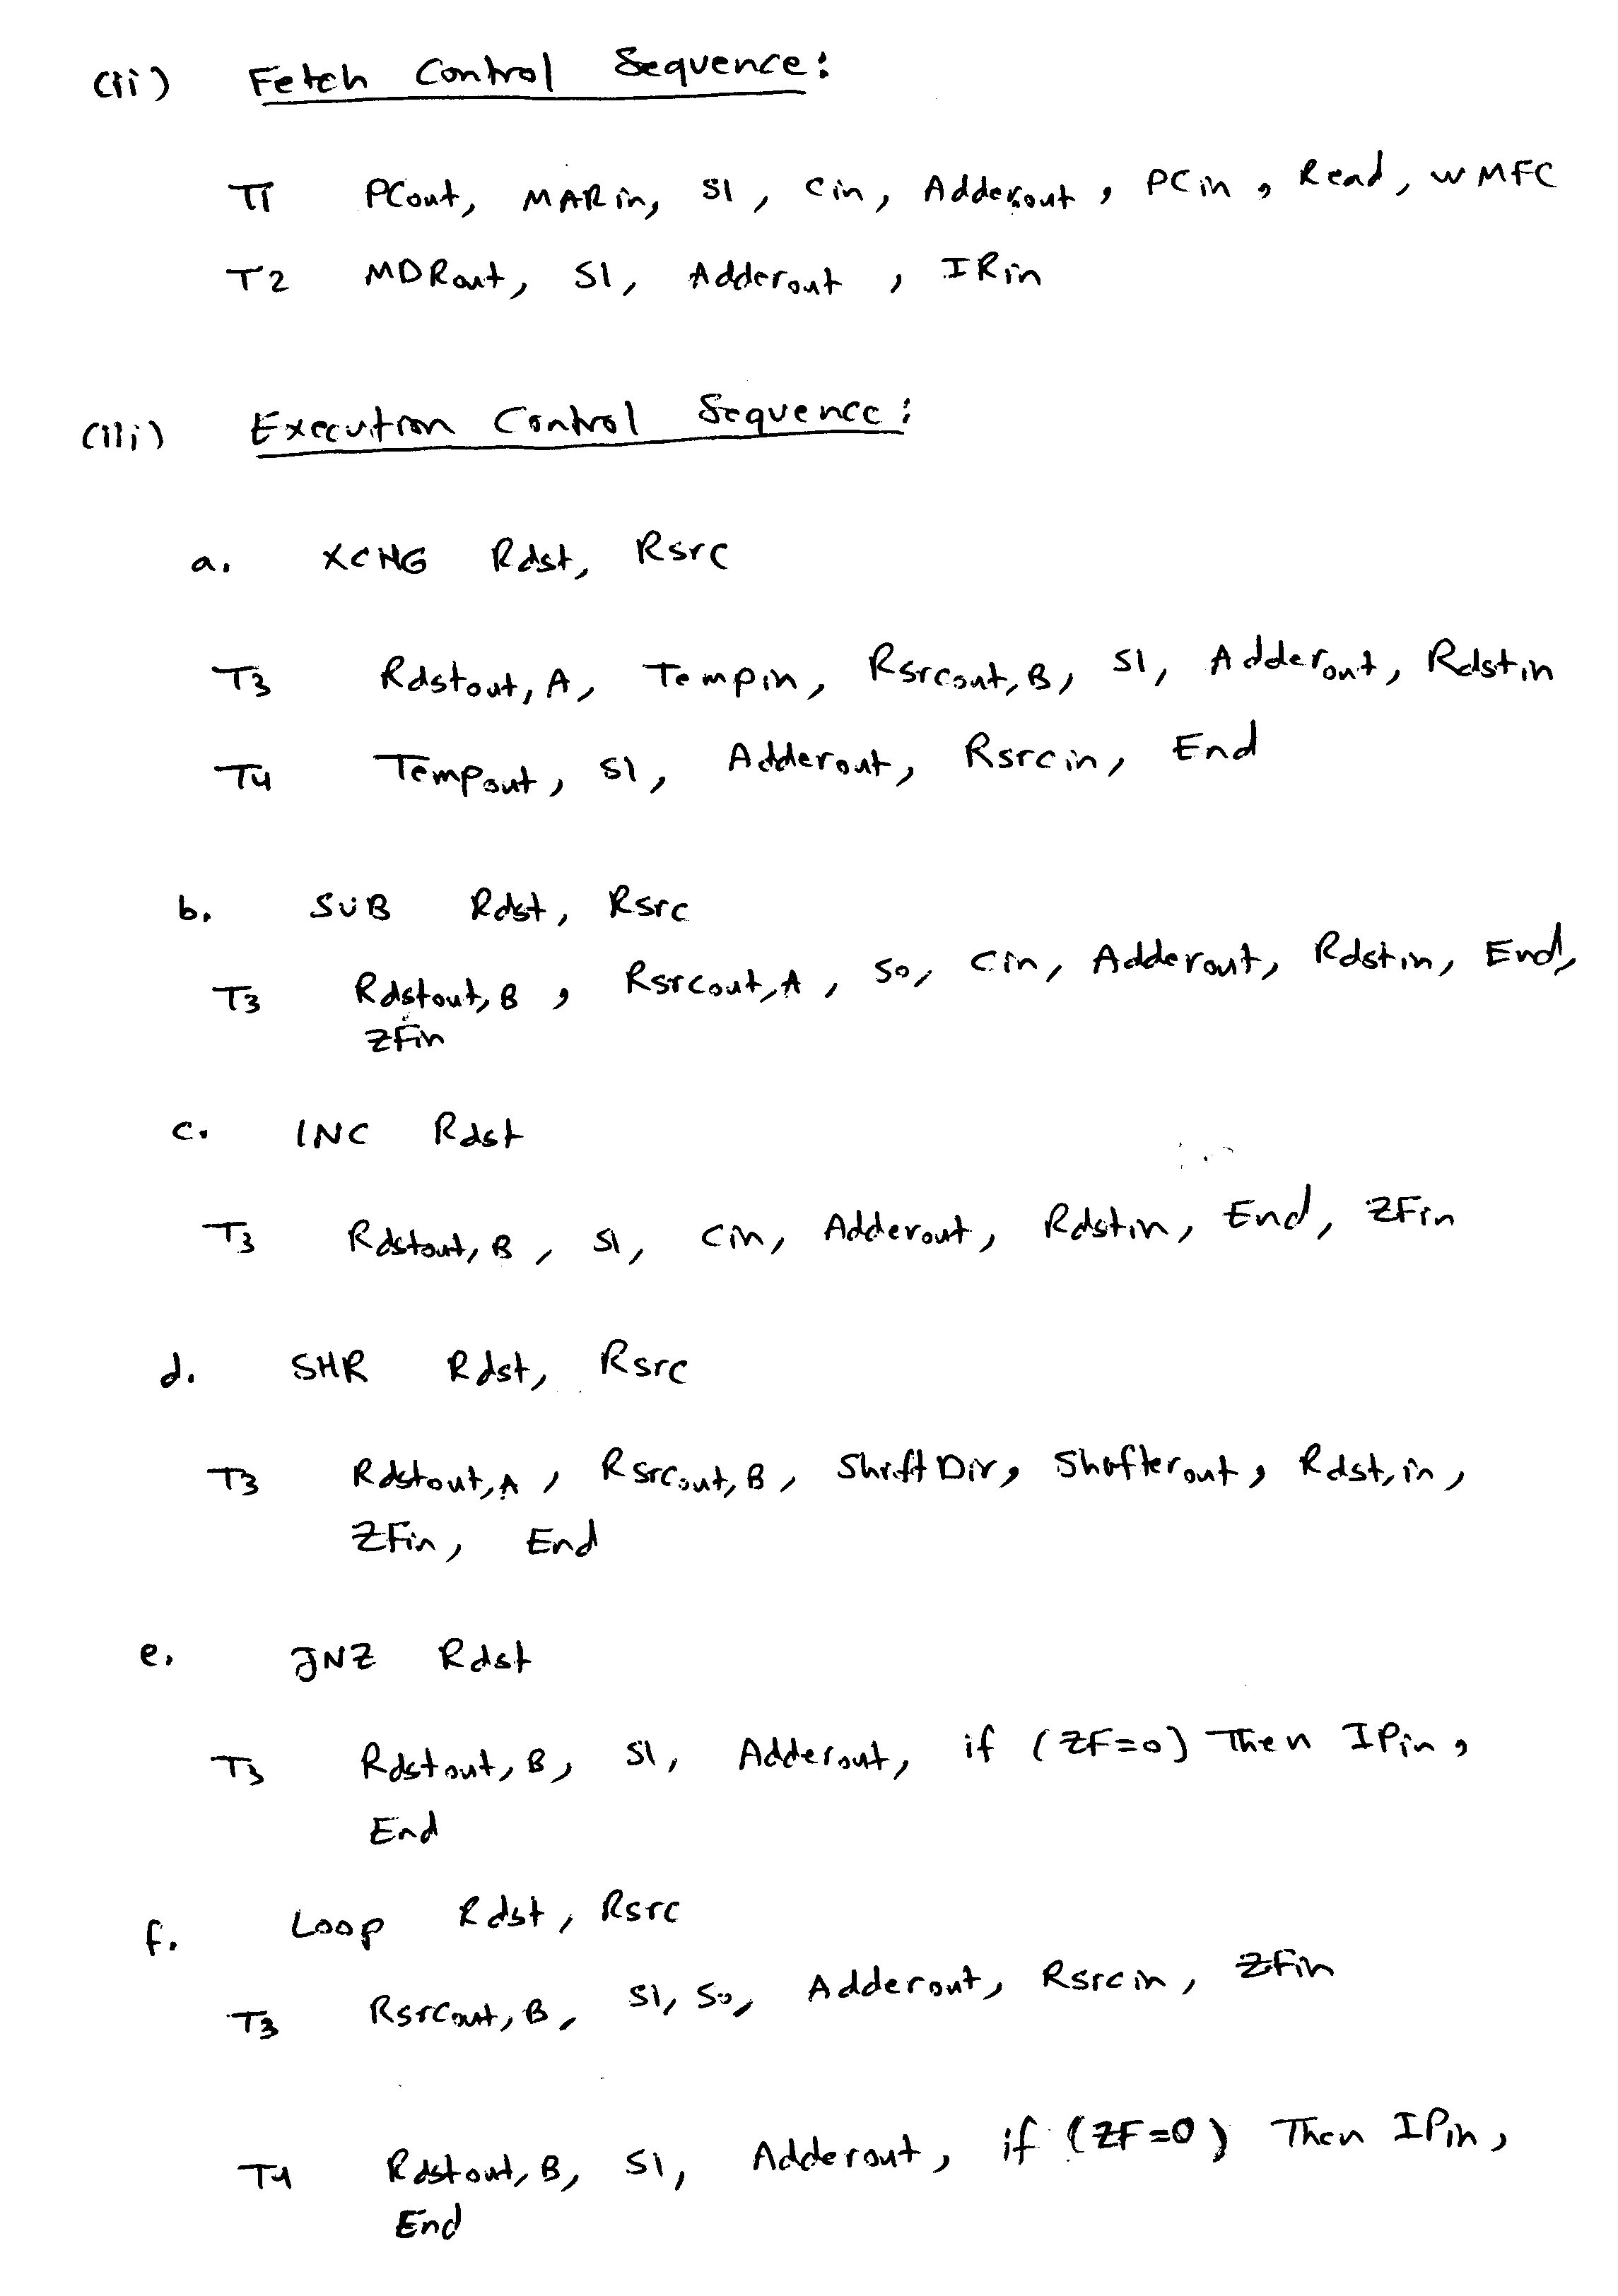 (ii) Fetch Control Sequence:
T1 PCout, MARin, S1, Cin, Adderout, PCin, Read, WMFC
T2 MDRout, S1, Adderout, IRin
(iii) Execution Control Sequence:
a. XCHG Rdst, Rsrc
T3 Rdstout,A, Tempin, Rsrcout,B, S1, Adderout, Rdstin
T4 Tempout, S1, Adderout, Rsrcin, End
b. SUB Rdst, Rsrc
T3 Rdstout,B, Rsrcout,A, S0, Cin, Adderout, Rdstin, End,
ZFin
c. INC Rdst
T3 Rdstout,B, S1, Cin, Adderout, Rdstin, End, ZFin
d. SHR Rdst, Rsrc
T3 Rdstout,A, Rsrcout,B, ShiftDir, Shifterout, Rdst,in,
ZFin, End
e. JNZ Rdst
T3 Rdstout,B, S1, Adderout, if (ZF=0) Then IPin,
End
f. Loop Rdst, Rsrc
T3 Rsrcout,B, S1, S0, Adderout, Rsrcin, ZFin
T4 Rdstout,B, S1, Adderout, if (ZF=0) Then IPin,
End